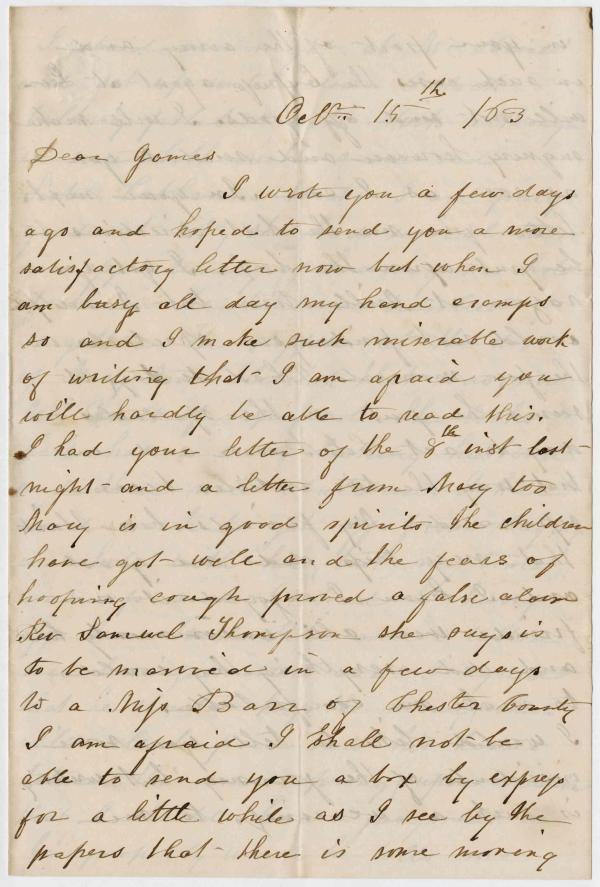 Octr 15th /63
Dear James
I wrote you a few days
ago and hoped to send you a more
satisfactory letter now but when I
am busy all day my hand cramps
so and I make such miserable work
of writing that I am afraid you
will hardly be able to read this.
I had your letter of the 8th inst last
night and a letter from Mary too
Mary is in good spirits the children
have got well and the fears of
hooping cough proved a false alarm
Rev Samuel Thompson she says is
to be married in a few days
to a Miss Barr of Chester County
I am afraid I shall not be
able to send you a box by express
for a little while as I see by the
papers that there is some moving